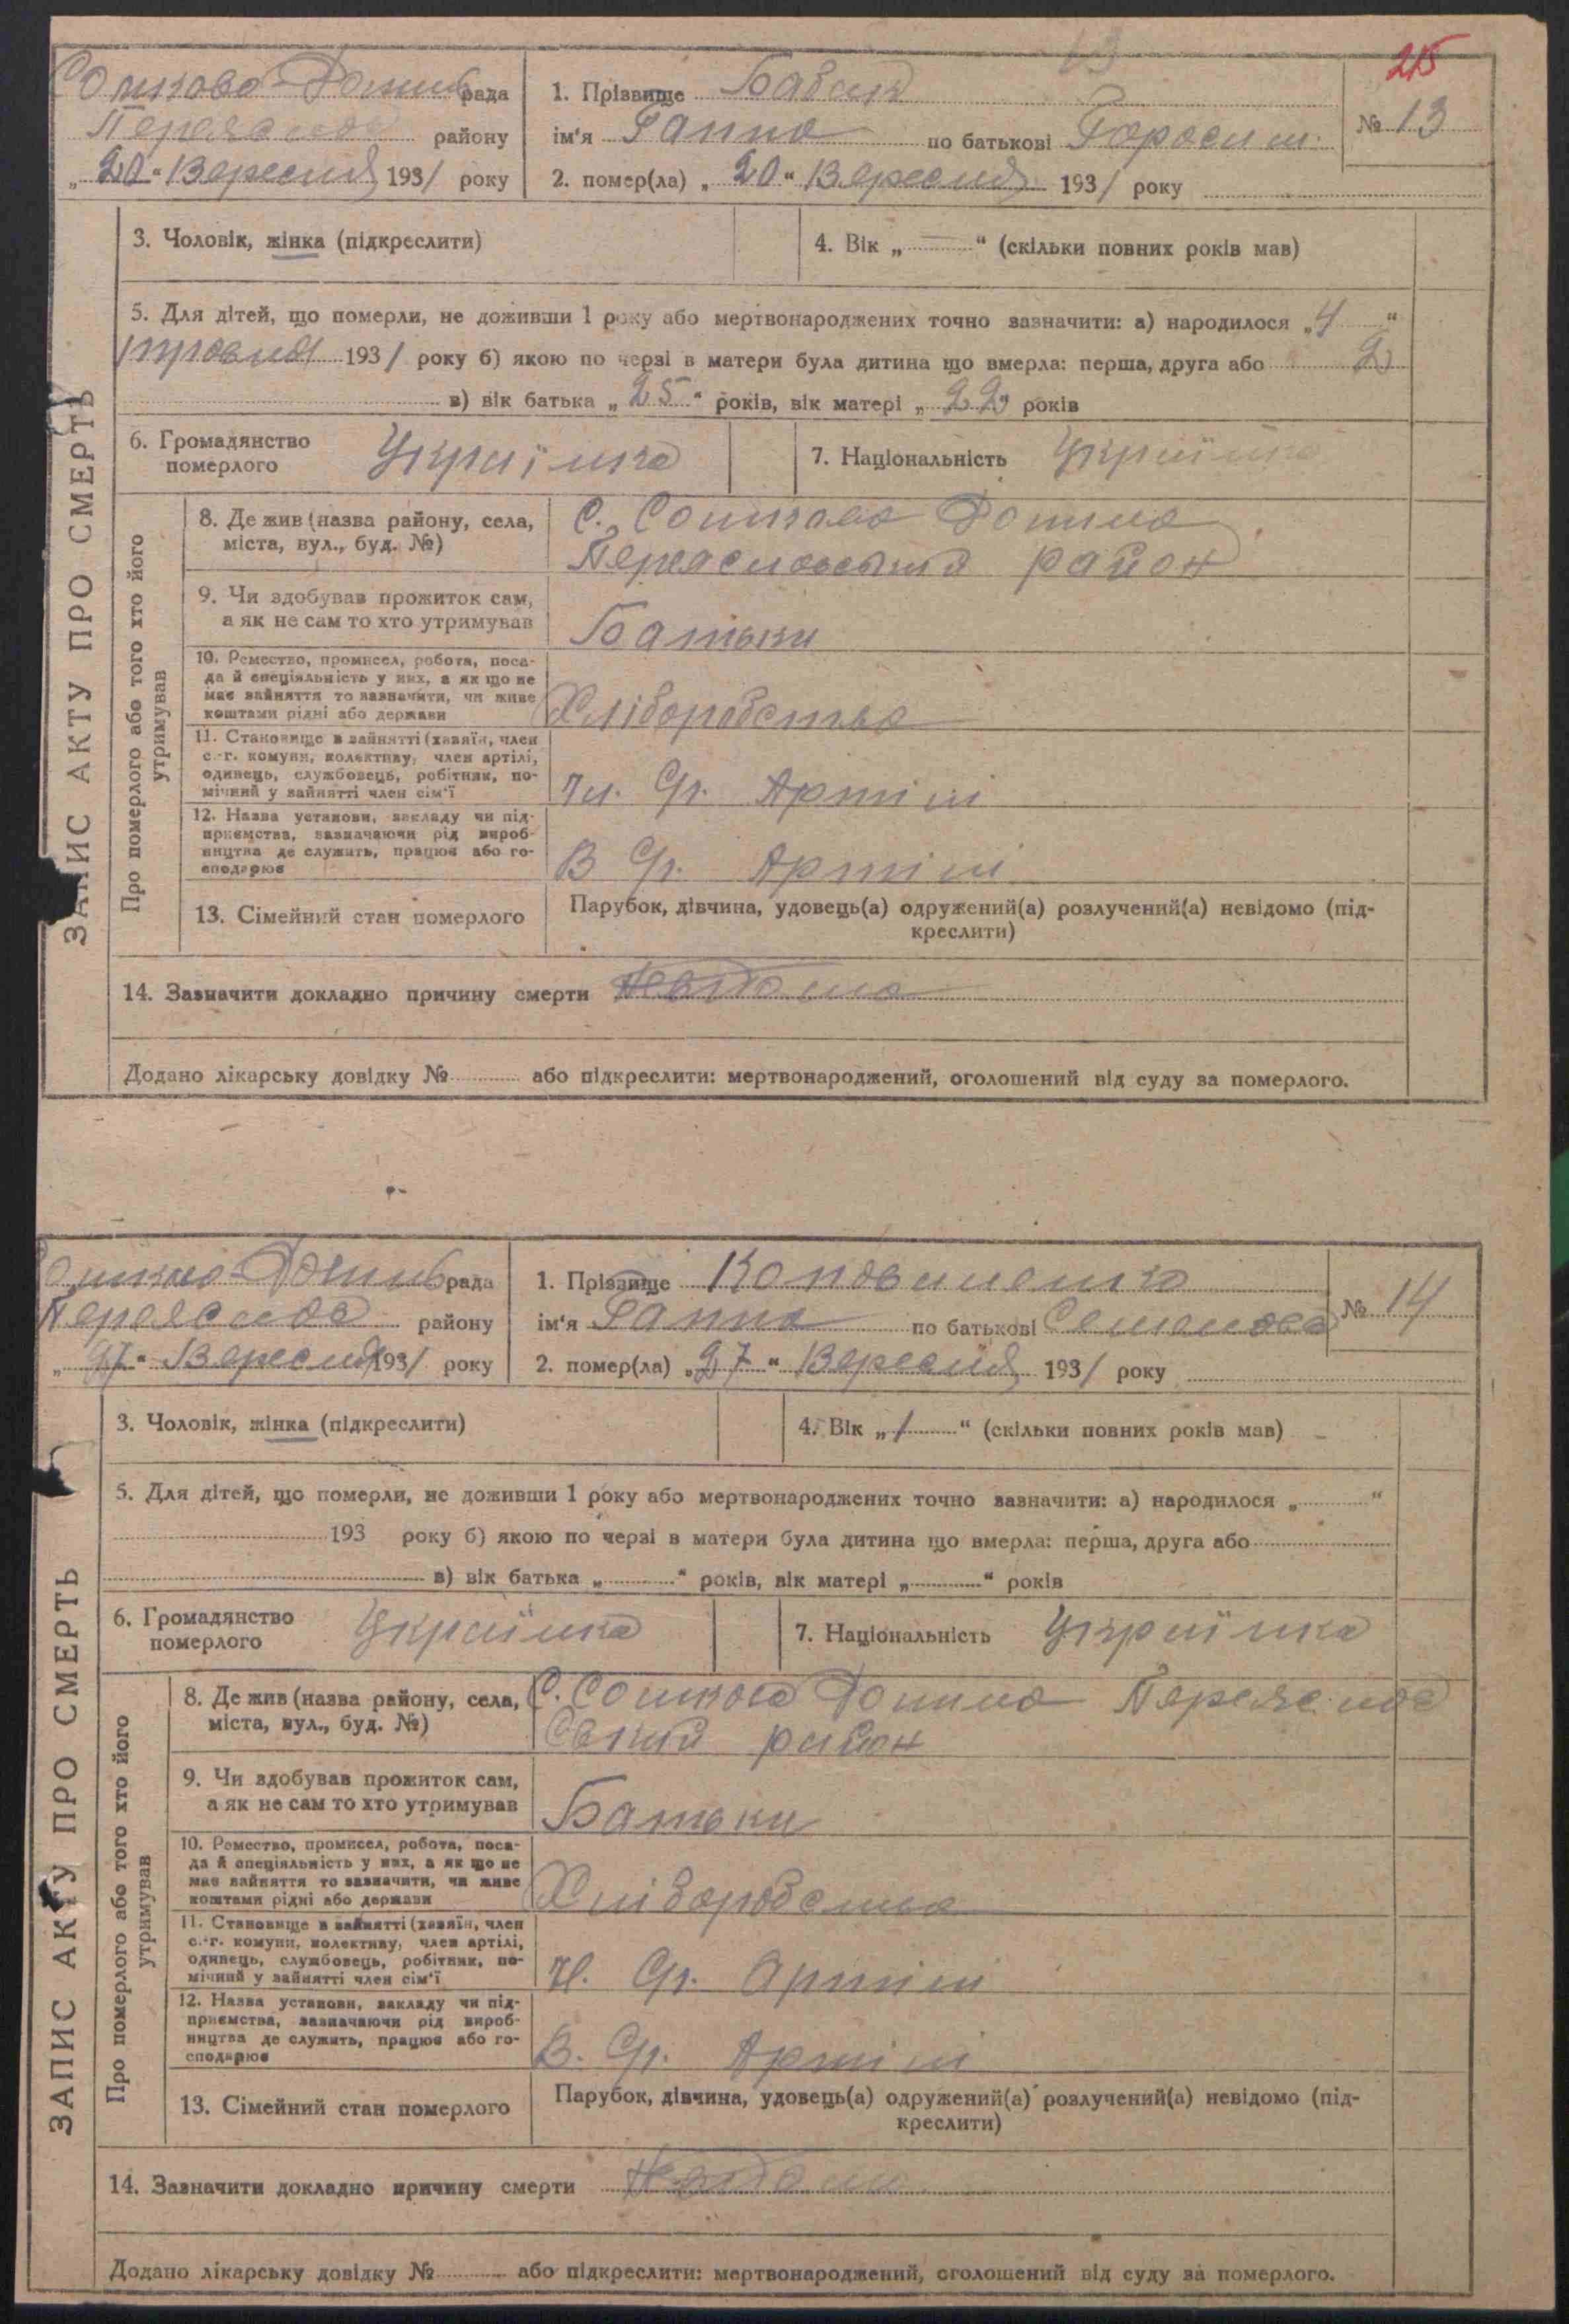 215
Сошково-Донинс рада
Переяслов району
„20“ Вересня 1931 року
1. Прізвище Бабак
ім'я Ганна по батькові Гарасим.
2. помер(ла) „20“ Вересня 1931 року
№ 13
3. Чоловік, жінка (підкреслити)
4. Вік „—“ (скільки повних років мав)
5. Для дітей, що померли, не доживши 1 року або мертвонароджених точно зазначити: а) народилося „4“
травня 1931 року б) якою по черзі в матери була дитина що вмерла: перша, друга або 2
в) вік батька „25“ років, вік матері „22“ років
6. Громадянство
померлого
Українка
7. Національність Українка
ЗАПИС АКТУ ПРО СМЕРТЬ
Про померлого або того хто його
утримував
8. Де жив (назва району, села,
міста, вул., буд. №)
С. Сошкова Донина
Переасловський район
9. Чи здобував прожиток сам,
а як не сам то хто утримував
Батьки
10. Ремество, промисел, робота, поса-
да й спеціяльність у них, а як що не
має зайняття то зазначити, чи живе
коштами рідні або держави
Хліборобство
11. Становище в зайнятті (хазяїн, член
с.-г. комуни, колективу, член артілі,
одинець, службовець, робітник, по-
мічний у зайнятті член сім'ї
Чл. Ср. Артілі
12. Назва установи, закладу чи під-
приємства, зазначаючи рід вироб-
ництва де служить, працює або го-
сподарює
В Ср. Артілі
13. Сімейний стан померлого
Парубок, дівчина, удовець(а) одружений(а) розлучений(а) невідомо (під-
креслити)
14. Зазначити докладно причину смерти Невідома
Додано лікарську довідку № або підкреслити: мертвонароджений, оголошений від суду за померлого.
Сошково-Донинс рада
Переяслов району
„27“ Вересня 1931 року
1. Прізвище
ім'я Ганна по батькові Семенова
2. помер(ла) „27“ Вересня 1931 року
№ 14
3. Чоловік, жінка (підкреслити)
4. Вік „1“ (скільки повних років мав)
5. Для дітей, що померли, не доживши 1 року або мертвонароджених точно зазначити: а) народилося „ “
193 року б) якою по черзі в матери була дитина що вмерла: перша, друга або
в) вік батька „ “ років, вік матері „ “ років
6. Громадянство
померлого
Українка
7. Національність Українка
ЗАПИС АКТУ ПРО СМЕРТЬ
Про померлого або того хто його
утримував
8. Де жив (назва району, села,
міста, вул., буд. №)
С. Сошкова Донина Переяслов
Ський район
9. Чи здобував прожиток сам,
а як не сам то хто утримував
Батьки
10. Ремество, промисел, робота, поса-
да й спеціяльність у них, а як що не
має зайняття то зазначити, чи живе
коштами рідні або держави
Хліборобство
11. Становище в зайнятті (хазяїн, член
с.-г. комуни, колективу, член артілі,
одинець, службовець, робітник, по-
мічний у зайнятті член сім'ї
Чл. Ср. Артілі
12. Назва установи, закладу чи під-
приємства, зазначаючи рід вироб-
ництва де служить, працює або го-
сподарює
В. Ср. Артілі
13. Сімейний стан померлого
Парубок, дівчина, удовець(а) одружений(а) розлучений(а) невідомо (під-
креслити)
14. Зазначити докладно причину смерти Невідома
Додано лікарську довідку № або підкреслити: мертвонароджений, оголошений від суду за померлого.